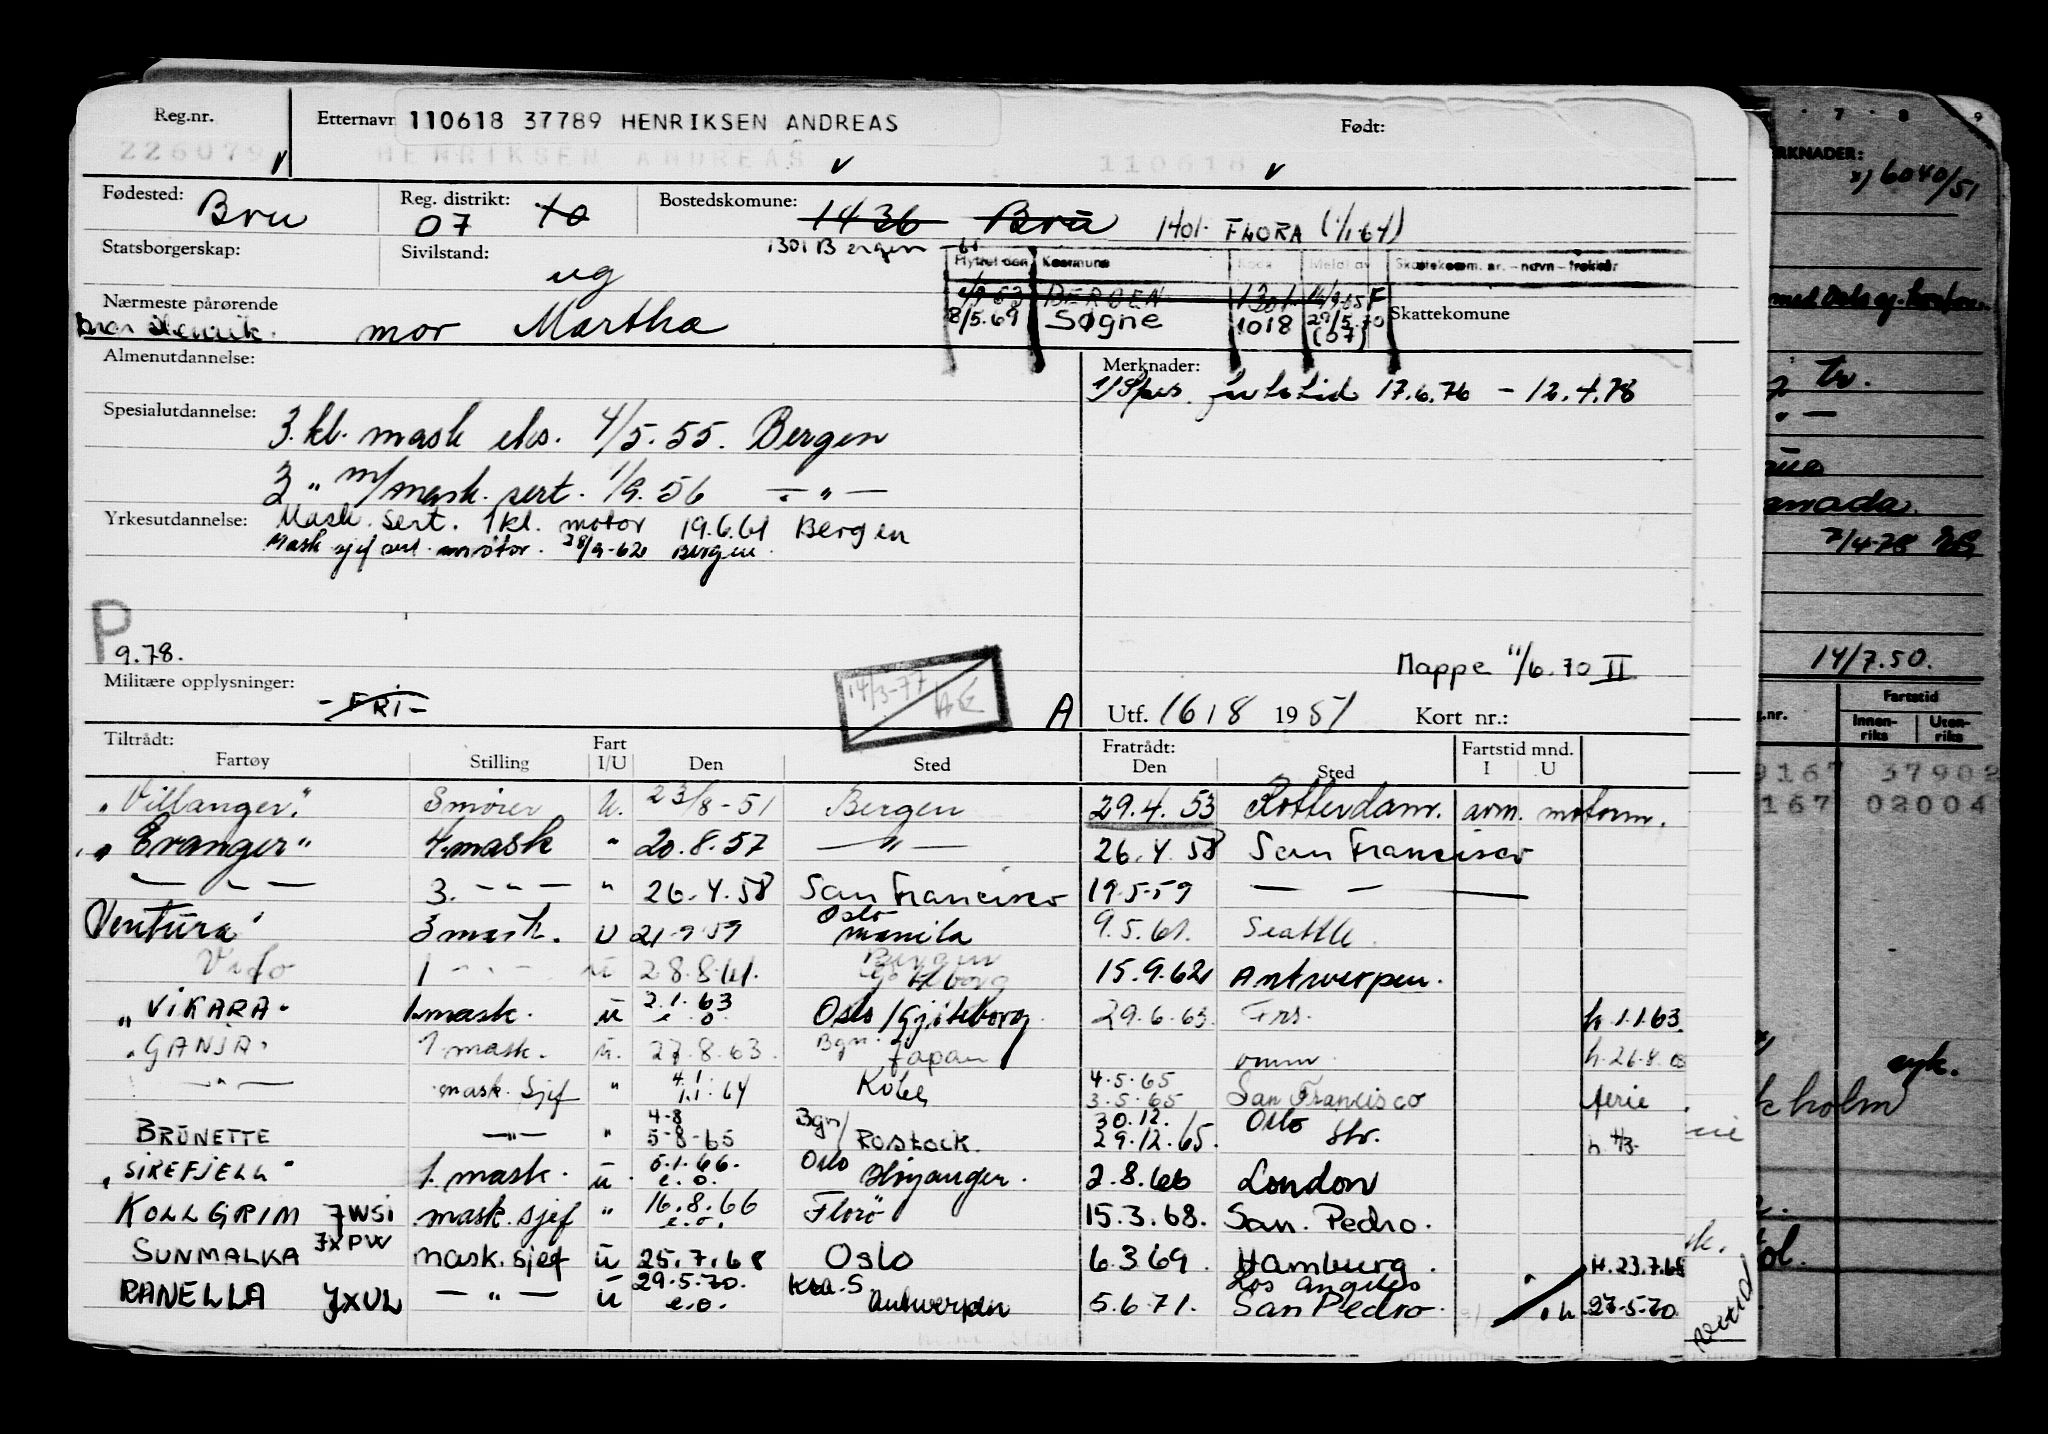 Reg.nr. Etternavn 110618 37789 HENRIKSEN ANDREAS Født:
226079 HENRIKSEN ANDREAS 110618
Fødested: Bru Reg. distrikt: 07 10 Bostedskomune: 1436 Bru 1401 FLORA (1/1-64)
Statsborgerskap: Sivilstand: ug 1301 Bergen
Flyttet den Kommune Kode Meldt av Skattekomm. nr. – navn – trekkår
BERGEN 1301 F
Nærmeste pårørende mor Martha 8/5.69 Søgne 1018 29/5.70 (07) Skattekomune
Almenutdannelse: Merknader:
17.6.76 – 12.4.78
Spesialutdannelse: 3.kl. mask eks. 4/5.55. Bergen
3 " m/mask. sert. 1/9.56 — " —
Yrkesutdannelse: Mask. sert. 1 kl. motor 19.6.61 Bergen
Mask sjef sert. m/motor. 28/9-62 Bergen.
P
9.78.
Mappe 11/6.70 II
Militære opplysninger: - FRI - 14/3-77
A Utf. 16 / 8 1951 Kort nr.:
Tiltrådt: Fart Fratrådt: Fartstid mnd.
Fartøy Stilling I/U Den Sted Den Sted I U
"Villanger" Smører U. 23/8-51 Bergen 29.4.53 Rotterdam. avm. motorm.
"Eranger" 4 mask " 20.8.57 — " — 26.4.58 San Francisco
— " — 3. — " — " 26.4.58 San Francisco 19.5.59 — —
Ventura 3 mask. U 21-9 59 Oslo Manila 9.5.61. Seattle.
Vito 1 - " - u 28.8.61. Bergen Gøteborg 15.9.62 Antwerpen.
"VIKARA" 1.mask. u 2.1.63 e.o. Oslo/Gjøteborg 29.6.63. Frs. h. 1.1.63.
"GANJA" 1 mask. u. 27.8.63. Bgn. Japan omm. h. 26.8.63
— " — mask. sjef " 4.1 1.1.64 Kobe 4.5.65 3.5.65 San Francisco ferie
BRUNETTE — " — " 4-8 5-8-65 Bgn/ Rostock. 30.12. 29.12.65. Oslo Str. h 4/3.
"SIREFJELL" 1. mask. u 5.1.66. e.o. Oslo Høyanger. 2.8.66 London
KOLLGRIM JWSI mask. sjef " 16.8.66 e.o. Florø 15.3.68. San. Pedro.
SUNMALKA JXPW mask. sjef u 25.7.68 Oslo 6.3.69. Hamburg. H. 23.7.68
RANELLA JXUL — " — u 29.5.70. e.o. Kra.S Antwerpen 5.6.71. Los Angeles San Pedro. h 27-5-70
7 8 9
MERKNADER:
x) 6040/51
7/4-78
14/7.50.
Fartstid
Innen-riks Uten-riks
9167 37902
167 02004
syk.